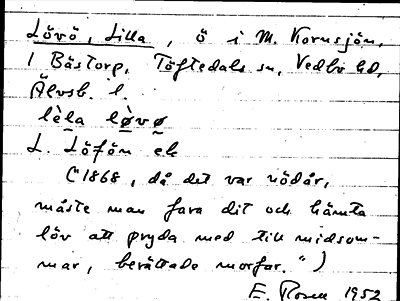 Lövö, Lilla, ö i M. Kornsjön,
1 Bästorp, Töftedals sn, Vedbo hd,
Älvsb. l.
lèla løvø
L. Löfön ek
("1868, då det var nödår,
måste man fara dit och hämta
löv att pryda med till midsom-
mar, berättade morfar.")
E. Rosell 1952